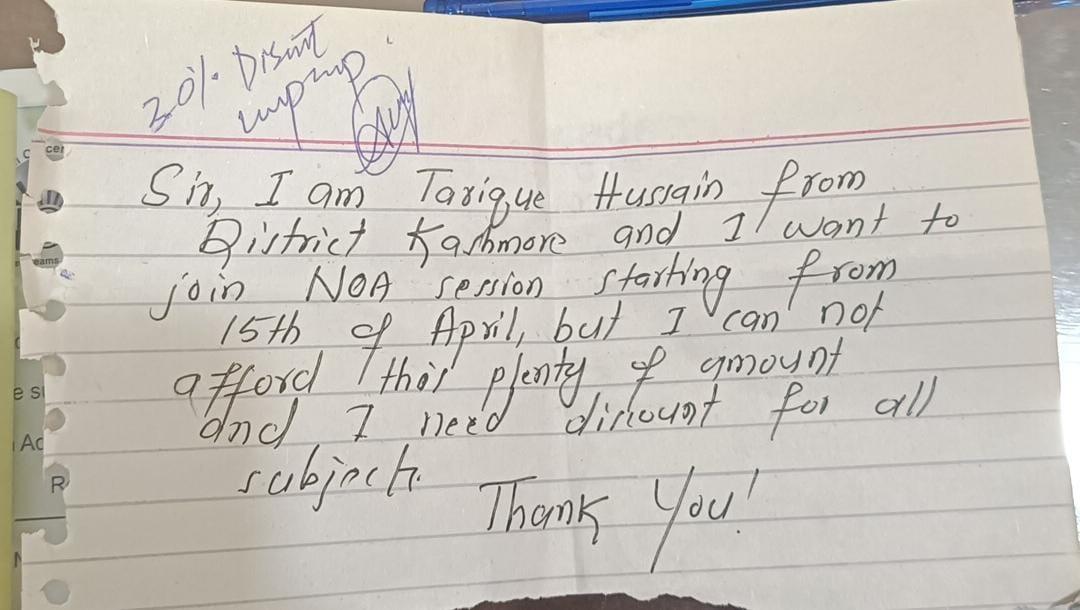 20% Disunt
Sir, I am Tarique Hussain from
District Kashmore and I want to
join NOA session starting from
15th of April, but I can not
afford this plenty of amount
and I need discount for all
subjects.
Thank You!
cer
eams
e s
Ac
R